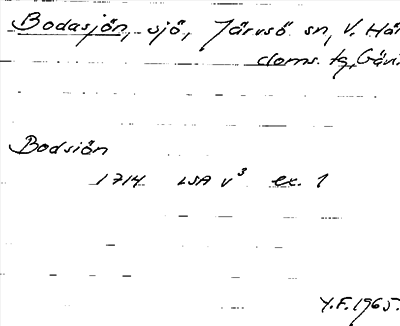 Bodasjön, sjö, Järvsö sn, V. Häl
doms. tg, Gävl
Bodsiön
1714 LSA V³ ex. 1
Y.F. 1965.